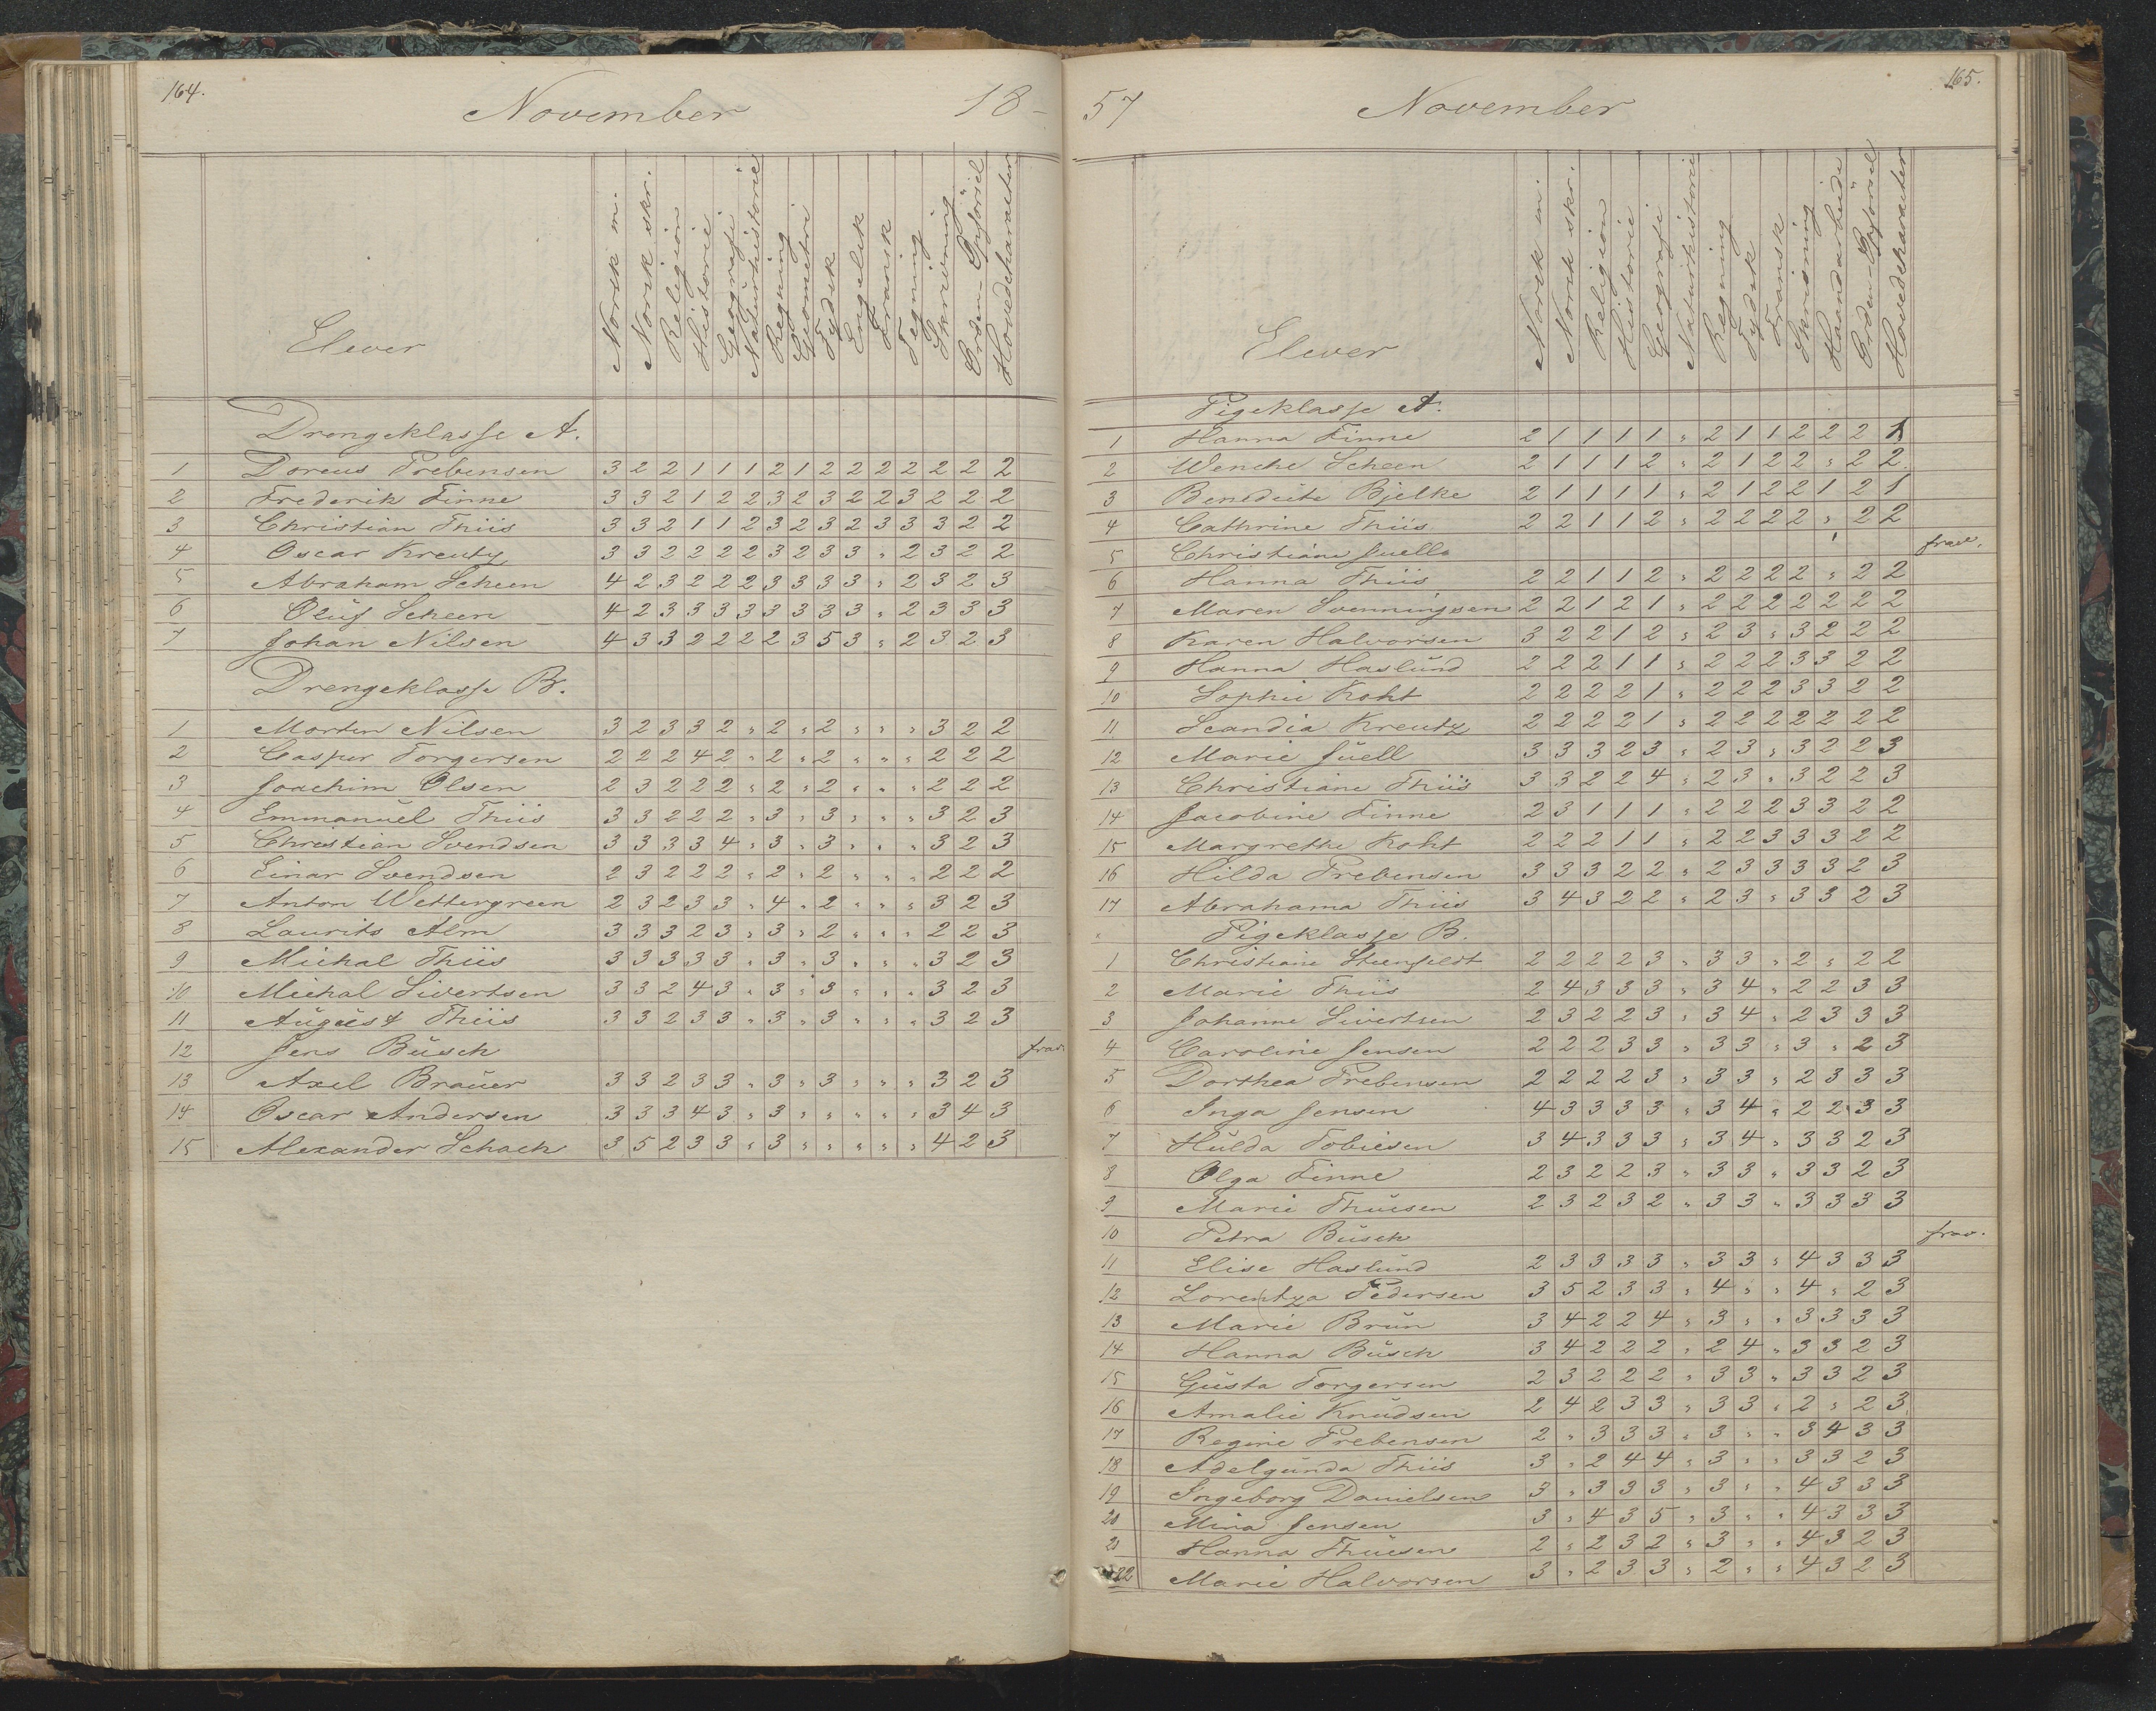 164.
November 18-
Elever Norsk m. Norsk skr. Religion Historie Geografi Naturhistorie Regning Geometri Tydsk Engelsk Fransk Tegning Skrivning Orden-Opførsel Hovedcharacter
Drengeklasse A.
1 Doreus Prebensen 3 2 2 1 1 1 2 1 2 2 2 2 2 2 2
2 Frederik Finne 3 3 2 1 2 2 3 2 3 2 2 3 2 2 2
3 Christian Thiis 3 3 2 1 1 2 3 2 3 2 3 3 3 2 2
4 Oscar Kreutz 3 3 2 2 2 2 3 2 3 3 " 2 3 2 2
5 Abraham Scheen 4 2 3 2 2 2 3 3 3 3 " 2 3 2 3
6 Oluf Scheen 4 2 3 3 3 3 3 3 3 3 " 2 3 3 3
7 Johan Nilsen 4 3 3 2 2 2 2 3 5 3 " 2 3 2 3
Drengeklasse B.
1 Morten Nilsen 3 2 3 3 2 " 2 " 2 " " " 3 2 2
2 Caspar Torgersen 2 2 2 4 2 " 2 " 2 " " " 2 2 2
3 Joachim Olsen 2 3 2 2 2 " 2 " 2 " " " 2 2 2
4 Emmanuel Thiis 3 3 2 2 2 " 3 " 3 " " " 3 2 3
5 Christian Svendsen 3 3 3 3 4 " 3 " 3 " " " 3 2 3
6 Einar Svendsen 2 3 2 2 2 " 2 " 2 " " " 2 2 2
7 Anton Wettergreen 2 3 2 3 3 " 4 " 2 " " " 3 2 3
8 Laurits Alm 3 3 3 2 3 " 3 " 2 " " " 2 2 3
9 Michal Thiis 3 3 3 3 3 " 3 " 3 " " " 3 2 3
10 Michal Sivertsen 3 3 2 4 3 " 3 " 3 " " " 3 2 3
11 August Thiis 3 3 2 3 3 " 3 " 3 " " " 3 2 3
12 Jens Busch frav.
13 Axel Brauer 3 3 2 3 3 " 3 " 3 " " " 3 2 3
14 Oscar Andersen 3 3 3 4 3 " 3 " " " " " 3 4 3
15 Alexander Schach 3 5 2 3 3 " 3 " " " " " 4 2 3
165.
57 November
Elever Norsk m. Norsk skr. Religion Historie Geografi Naturhistorie Regning Tydsk Fransk Skrivning Haandarbeide Orden-Opførsel Hovedcharacter
Pigeklasse A.
1 Hanna Finne 2 1 1 1 1 " 2 1 1 2 2 2 1
2 Wenche Scheen 2 1 1 1 2 " 2 1 2 2 " 2 2
3 Benedicte Bjelke 2 1 1 1 1 " 2 1 2 2 1 2 1
4 Cathrine Thiis 2 2 1 1 2 " 2 2 2 2 " 2 2
5 Christiane Juell frav.
6 Hanna Thiis 2 2 1 1 2 " 2 2 2 2 " 2 2
7 Maren Svenningsen 2 2 1 2 1 " 2 2 2 2 2 2 2
8 Karen Halvorsen 3 2 2 1 2 " 2 3 " 3 2 2 2
9 Hanna Haslund 2 2 2 1 1 " 2 2 2 3 3 2 2
10 Sophie Koht 2 2 2 2 1 " 2 2 2 3 3 2 2
11 Scandia Kreutz 2 2 2 2 1 " 2 2 2 2 2 2 2
12 Marie Juell 3 3 3 2 3 " 2 3 " 3 2 2 3
13 Christiane Thiis 3 3 2 2 4 " 2 3 " 3 2 2 3
14 Jacobine Finne 2 3 1 1 1 " 2 2 2 3 3 2 2
15 Margrethe Koht 2 2 2 1 1 " 2 2 3 3 3 2 2
16 Hilda Prebensen 3 3 3 2 2 " 2 3 3 3 3 2 3
17 Abrahama Thiis 3 4 3 2 2 " 2 3 " 3 3 2 3
Pigeklasse B.
1 Christiane Steenfeldt 2 2 2 2 3 " 3 3 " 2 " 2 2
2 Marie Thiis 2 4 3 3 3 " 3 4 " 2 2 3 3
3 Johanne Sivertsen 2 3 2 2 3 " 3 4 " 2 3 3 3
4 Caroline Jensen 2 2 2 3 3 " 3 3 " 3 " 2 3
5 Dorthea Prebensen 2 2 2 2 3 " 3 3 " 2 3 3 3
6 Inga Jensen 4 3 3 3 3 " 3 4 " 2 2 3 3
7 Hulda Tobiesen 3 4 3 3 3 " 3 4 " 3 3 2 3
8 Olga Finne 2 3 2 2 3 " 3 3 " 3 3 2 3
9 Marie Thuesen 2 3 2 3 2 " 3 3 " 3 3 3 3
10 Petra Busch frav.
11 Elise Haslund 2 3 3 3 3 " 3 3 " 4 3 3 3
12 Lorentza Pedersen 3 5 2 3 3 " 4 " " 4 " 2 3
13 Marie Brun 3 4 2 2 4 " 3 " " 3 3 3 3
14 Hanna Busch 3 4 2 2 2 " 2 4 " 3 3 2 3
15 Gusta Torgersen 2 3 2 2 2 " 3 3 " 3 3 2 3
16 Amalie Knudsen 2 4 2 3 3 " 3 3 " 2 " 2 3
17 Regine Prebensen 2 " 3 3 3 " 3 " " 3 4 3 3
18 Adelgunda Thiis 3 " 2 4 4 " 3 " " 3 3 2 3
19 Ingeborg Danielsen 3 " 3 3 3 " 3 " " 4 3 3 3
20 Mina Jensen 3 " 4 3 5 " 3 " " 4 3 3 3
21 Hanna Thuesen 2 " 2 3 2 " 3 " " 4 3 2 3
22 Marie Halvorsen 3 " 2 3 3 " 2 " " 4 3 2 3